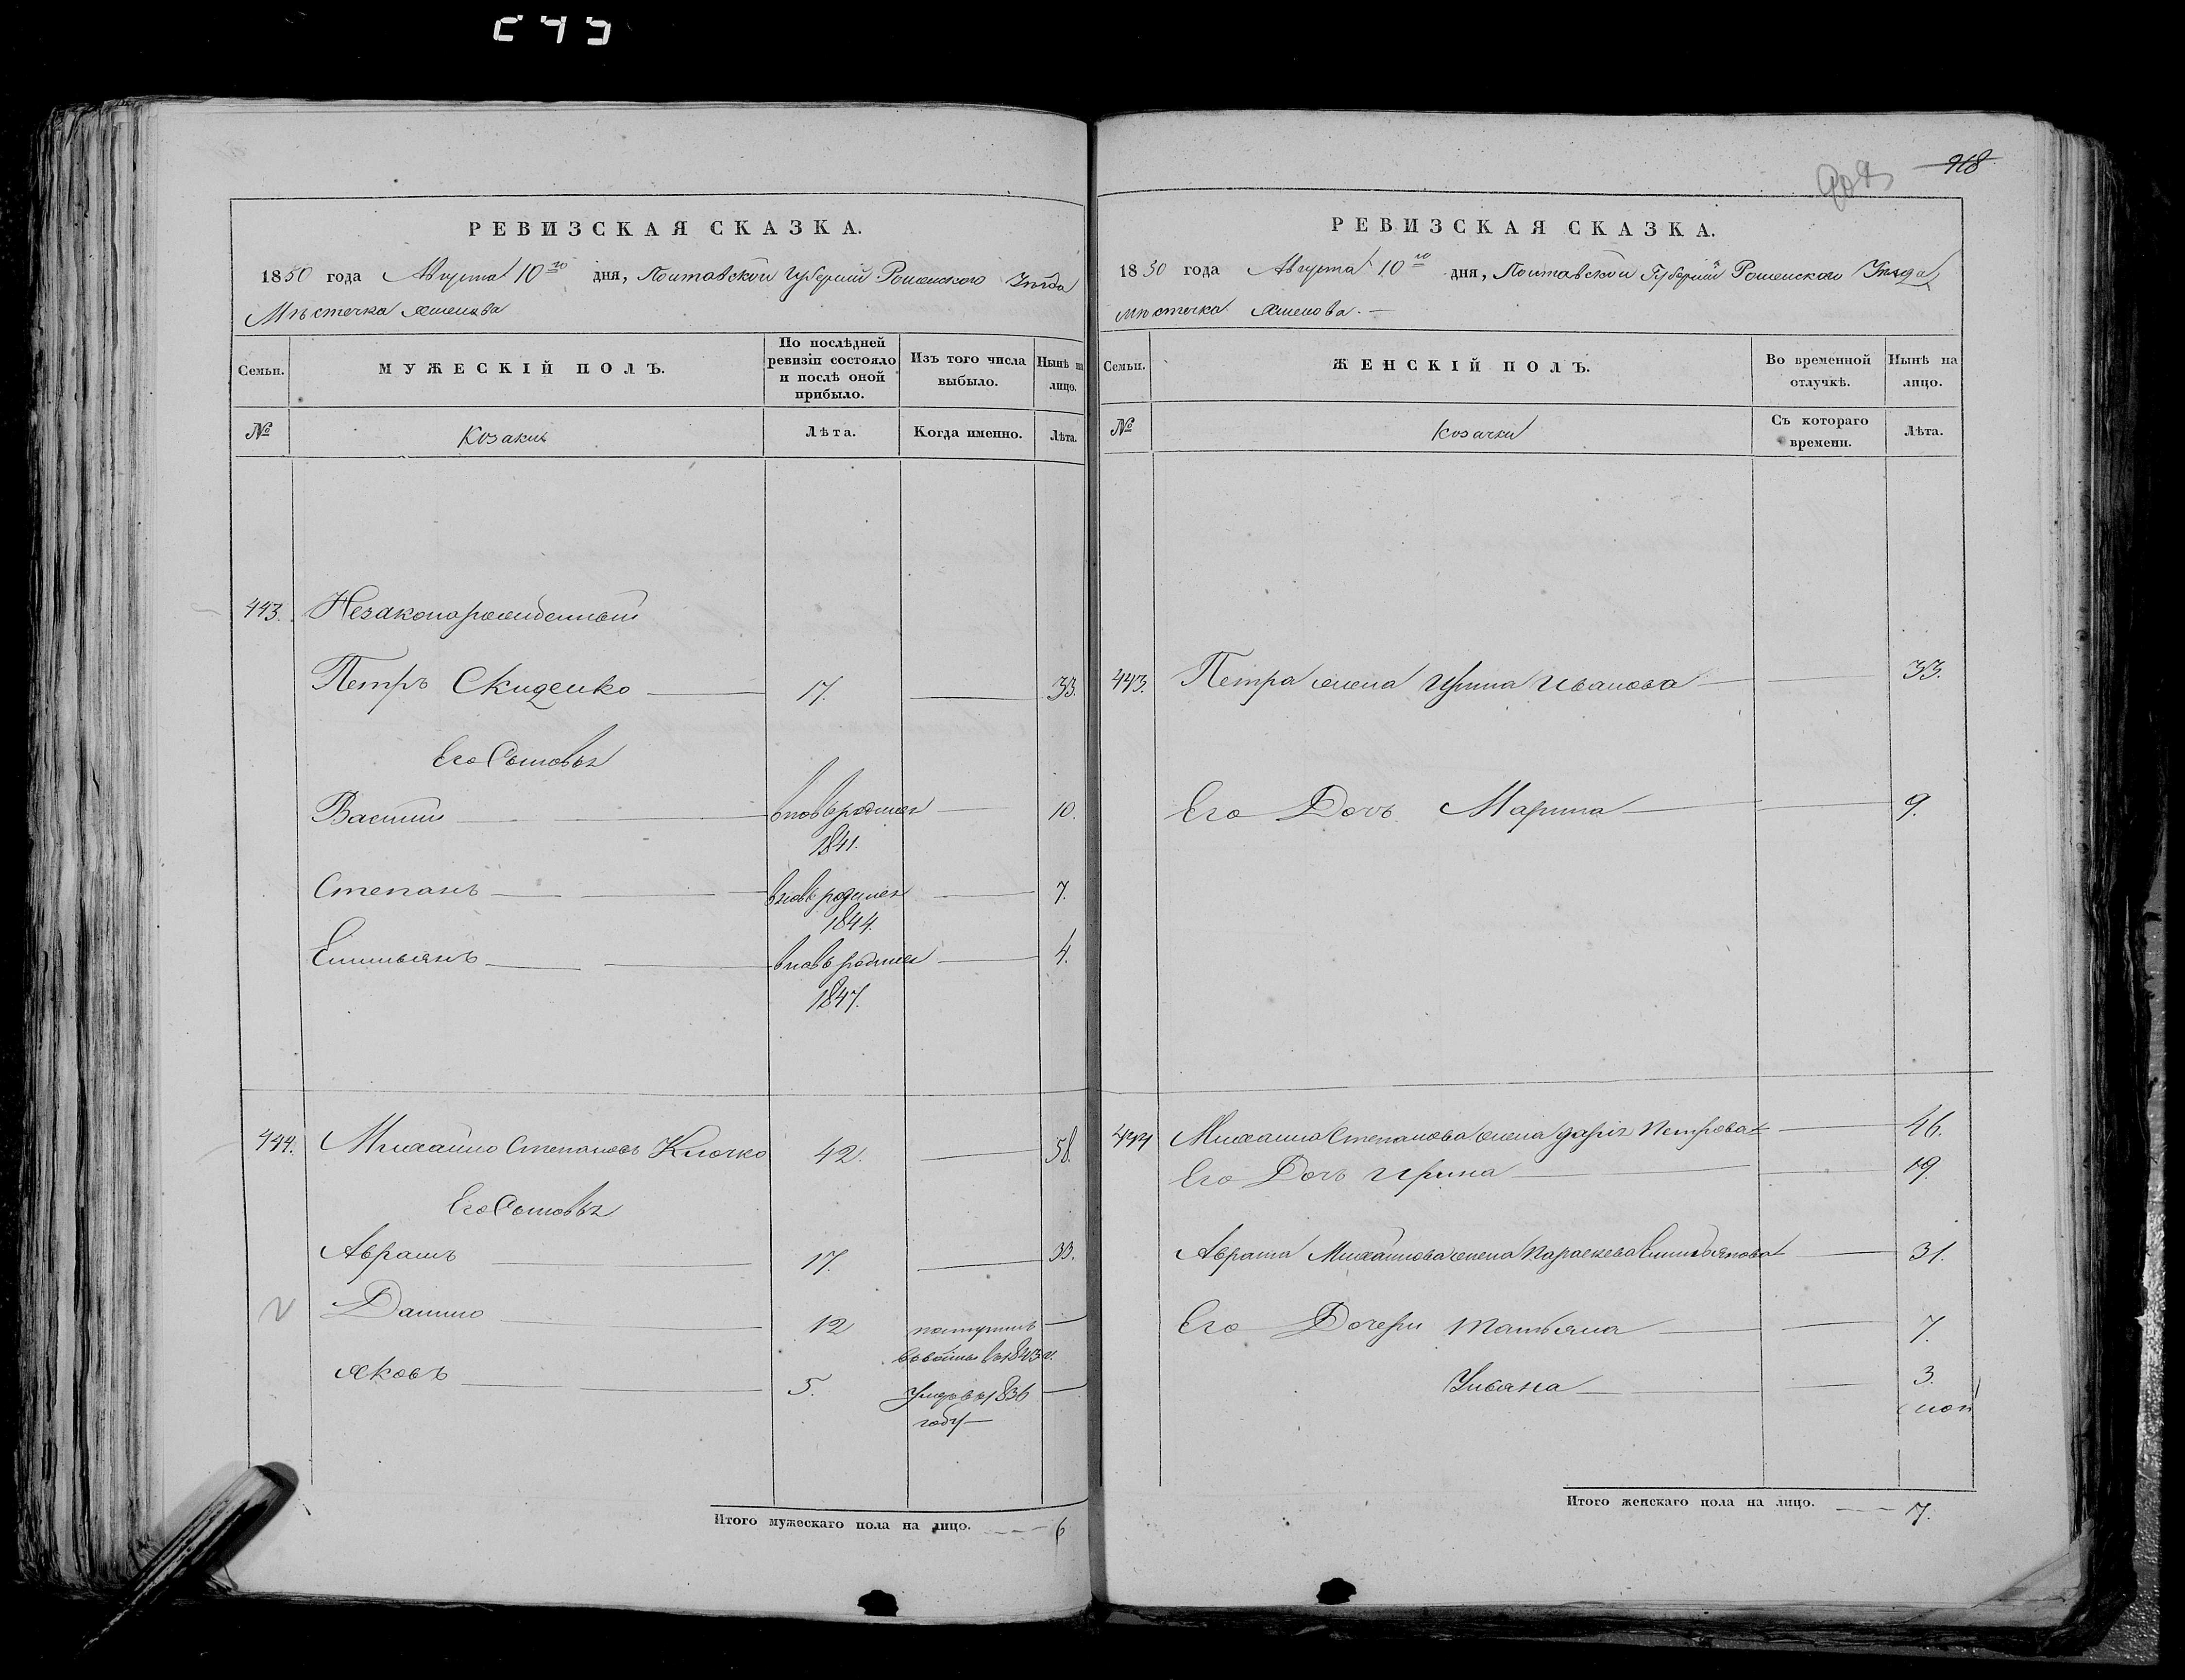 918
РЕВИЗСКАЯ СКАЗКА.
1850 года Августа 10го дня, Полтавской Губерніи Роменского Уѣзда
Мѣстечка Хмелова
Семьи.
МУЖЕСКІЙ ПОЛЪ.
По послѣдней ревизіи состояло и послѣ оной прибыло.
Изъ того числа выбыло.
Нынѣ на лицо.
№
Козаки
Лѣта.
Когда именно.
Лѣта.
443. Незаконорожденный
Петръ Скиденко 17. 33.
Его Сыновья
Василий вновь родился 10.
1841.
Степанъ вновь родился 7.
1844.
Емильянъ вновь родился 4.
1847.
444. Михайло Степановъ Клочко 42. 58.
Его Сыновья
Аврамъ 17. 33.
Данило 12 поступилъ
въ 1843 г.
Яковъ 5. Умеръ въ 1836
году
Итого мужескаго пола на лицо. 6
РЕВИЗСКАЯ СКАЗКА.
1850 года Августа 10го дня, Полтавской Губерніи Роменского Уѣзда
мѣстечка Хмелова.
Семьи.
ЖЕНСКІЙ ПОЛЪ.
Во временной отлучкѣ.
Нынѣ на лицо.
№
Козачки
Съ котораго времени.
Лѣта.
443. Петра жена Ирина Иванова 33.
Его Дочь Марина 9.
444 Михайла Степанова жена Дарія Петрова 46.
Его Дочь Ирина 19.
Аврама Михайлова жена Параскева Емильянова 31.
Его Дочери Татьяна 7.
Ульяна 3.
Итого женскаго пола на лицо. 7.